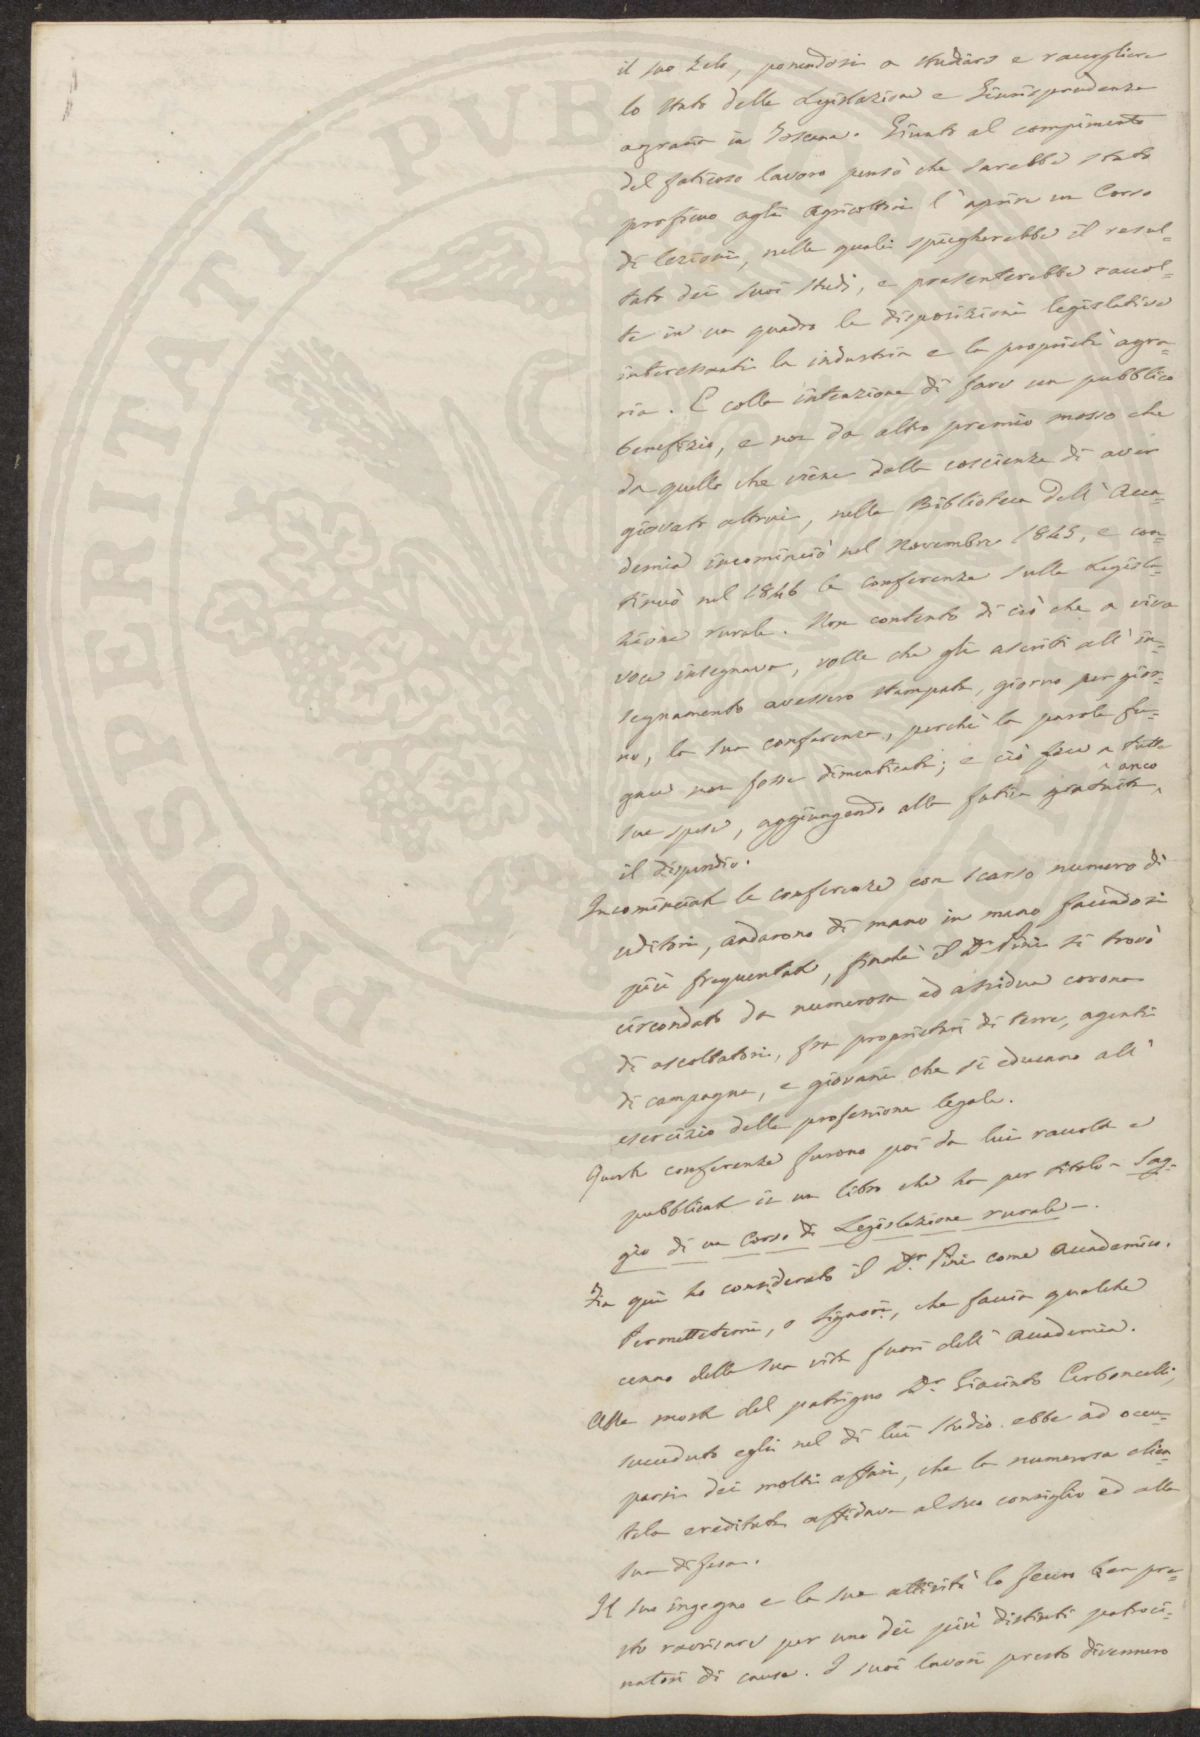 il suo zelo, ponendosi a studiare e raccogliere
lo stato della Legislazione e Giurisprudenza
agraria in Toscana. Giunto al compimento
del faticoso lavoro pensò che sarebbe stato
proficuo agli agricoltori l'aprire un Corso
di lezioni, nelle quali spiegherebbe il resul-
tato dei suoi studi, e presenterebbe raccol-
te in un quadro le disposizioni legislative
interessanti la industria e la proprietà agra-
ria. E colla intenzione di fare un pubblico
benefizio, e non da altro premio mosso che
da quello che viene dalla coscienza di aver
giovato altrui, nella Biblioteca dell'Acca-
demia incominciò nel Novembre 1845, e con-
tinuò nel 1846 le conferenze sulla Legisla-
zione rurale. Non contento di ciò che a viva
voce insegnava, volle che gli ascritti all'in-
segnamento avessero stampata, giorno per gior-
no, la sua conferenza, perchè la parola fu-
gace non fosse dimenticata; e ciò fece a tutte
sue spese, aggiungendo alla fatica gratuita ^ anco
il dispendio.
Incominciate le conferenze con scarso numero di
uditori, andarono di mano in mano facendosi
più frequentate, finchè il Dr. Pini si trovò
circondato da numerosa ed assidua corona
di ascoltatori, fra proprietari di terre, agenti
di campagna, e giovani che si educano all'
esercizio della professione legale.
Queste conferenze furono poi da lui raccolte e
pubblicate in un libro che ha per titolo - Sag-
gio di un Corso di Legislazione rurale -.
Fin qui ho considerato il Dr. Pini come Accademico.
Permettetemi, o Signori, che faccia qualche
cenno della sua vita fuori dell'Accademia.
Alla morte del patrigno Dr. Giacinto Cerboncelli,
succeduto egli nel di lui studio ebbe ad occu-
parsi dei molti affari, che la numerosa clien-
tela ereditata affidava al suo consiglio ed alla
sua difesa.
Il suo ingegno e la sua attività lo fecero ben pre-
sto ravvisare per uno dei più distinti patroci-
natori di cause. I suoi lavori presto divennero
PROSPERITATI PVBLICAE